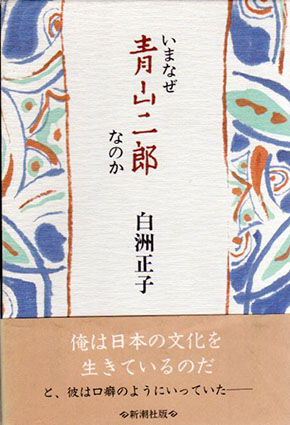 いまなぜ
青山二郎
なのか
白洲正子
俺は日本の文化を
生きているのだ
と、彼は口癖のようにいっていた――
新潮社版